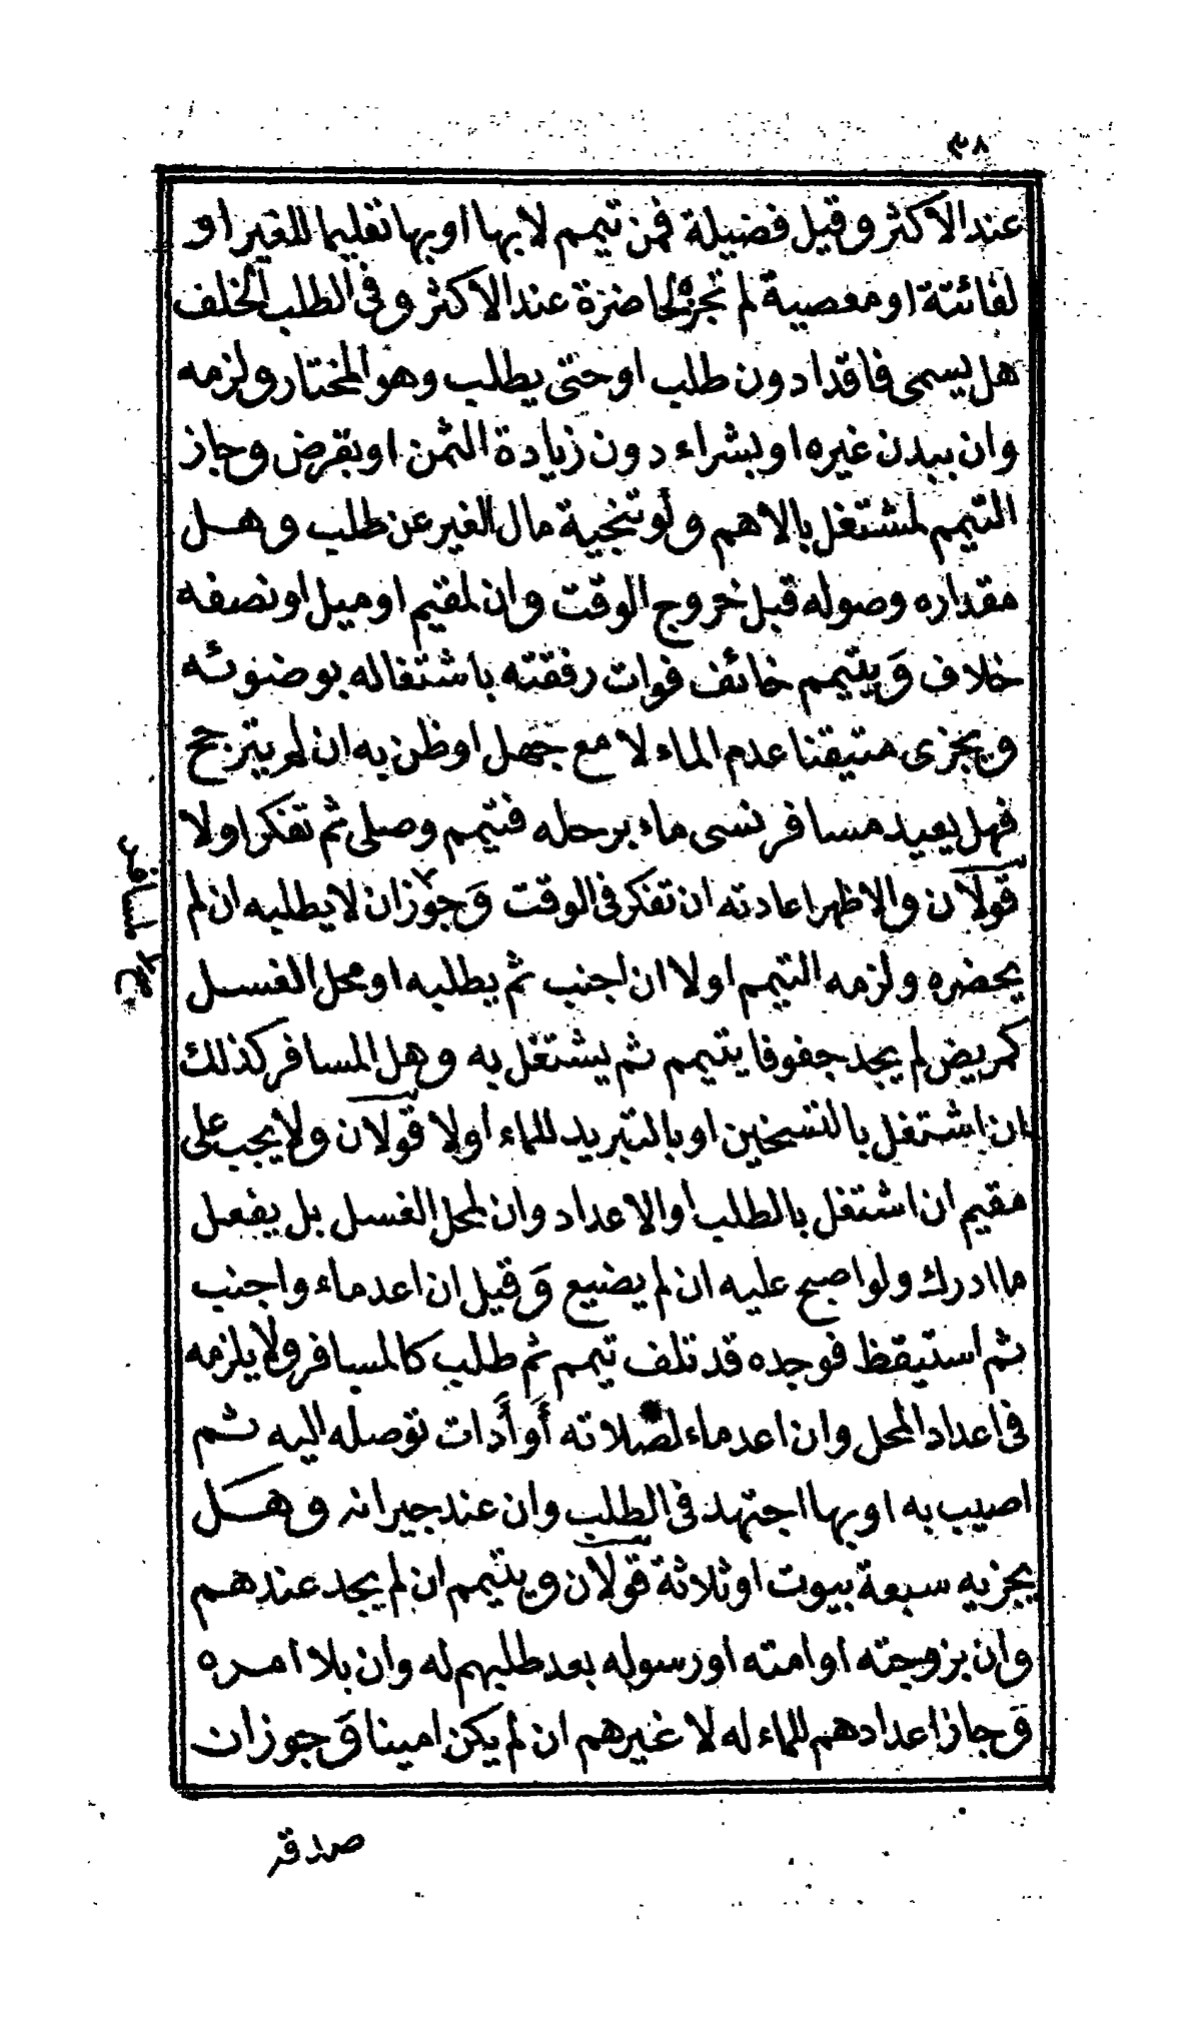 ٣٨
عند الاكثر وقيل فضيلة فمن تيمم لا بها او بها تعليما للغير او
لفائتة او معصية لم تجزه لحاضرة عند الاكثر وفى الطلب الخلف
هل يسمى فاقدا دون طلب او حتى يطلب وهو المختار ولزمه
وان ببدن غيره او بشراء دون زيادة الثمن او بقرض وجاز
التيمم لمشتغل بالاهم ولو تنجية مال الغير عن طلب وهل
مقداره وصوله قبل خروج الوقت وان لمقيم او ميل او نصفه
خلاف ويتيمم خائف فوات رفقته باشتغاله بوضوئه
ويجزى متيقنا عدم الماء لا مع جهل او ظن به ان لم يترجح
فهل يعيد مسافر نسى ماء برحله فتيمم وصلى ثم تفكر اولا
قولان والاظهر اعادته ان تفكر فى الوقت وجوز ان لا يطلبه ان لم
يحضره ولزمه التيمم اولا ان اجنب ثم يطلبه او محل الغسل
كمريض لم يجد جفوفا يتيمم ثم يشتغل به وهل المسافر كذلك
ان اشتغل بالتسخين او بالتبريد للماء اولا قولان ولا يجب على
مقيم ان اشتغل بالطلب او الاعداد وان لمحل الغسل بل يفعل
ما ادرك ولو اصبح عليه ان لم يضيع وقيل ان اعد ماء واجنب
ثم استيقظ فوجده قد تلف تيمم ثم طلب كالمسافر ولا يلزمه
فى اعداد المحل وان اعد ماء لصلاته أو أدات توصله اليه ثم
اصيب به او بها اجتهد فى الطلب وان عند جيرانه وهل
يجزيه سبعة بيوت او ثلاثة قولان ويتيمم ان لم يجد عندهم
وان بزوجته او امته او رسوله بعد طلبهم له وان بلا امره
وجاز اعدادهم للماء له لا غيرهم ان لم يكن امينا وجوز ان
صدقه
لمسافر